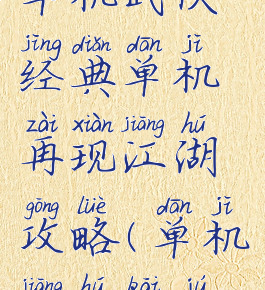 单机武侠
jīng diǎn dān jī
经典单机
zài xiàn jiāng hú
再现江湖
gōng lüè dān jī
攻略(单机
jiāng hú kāi jú